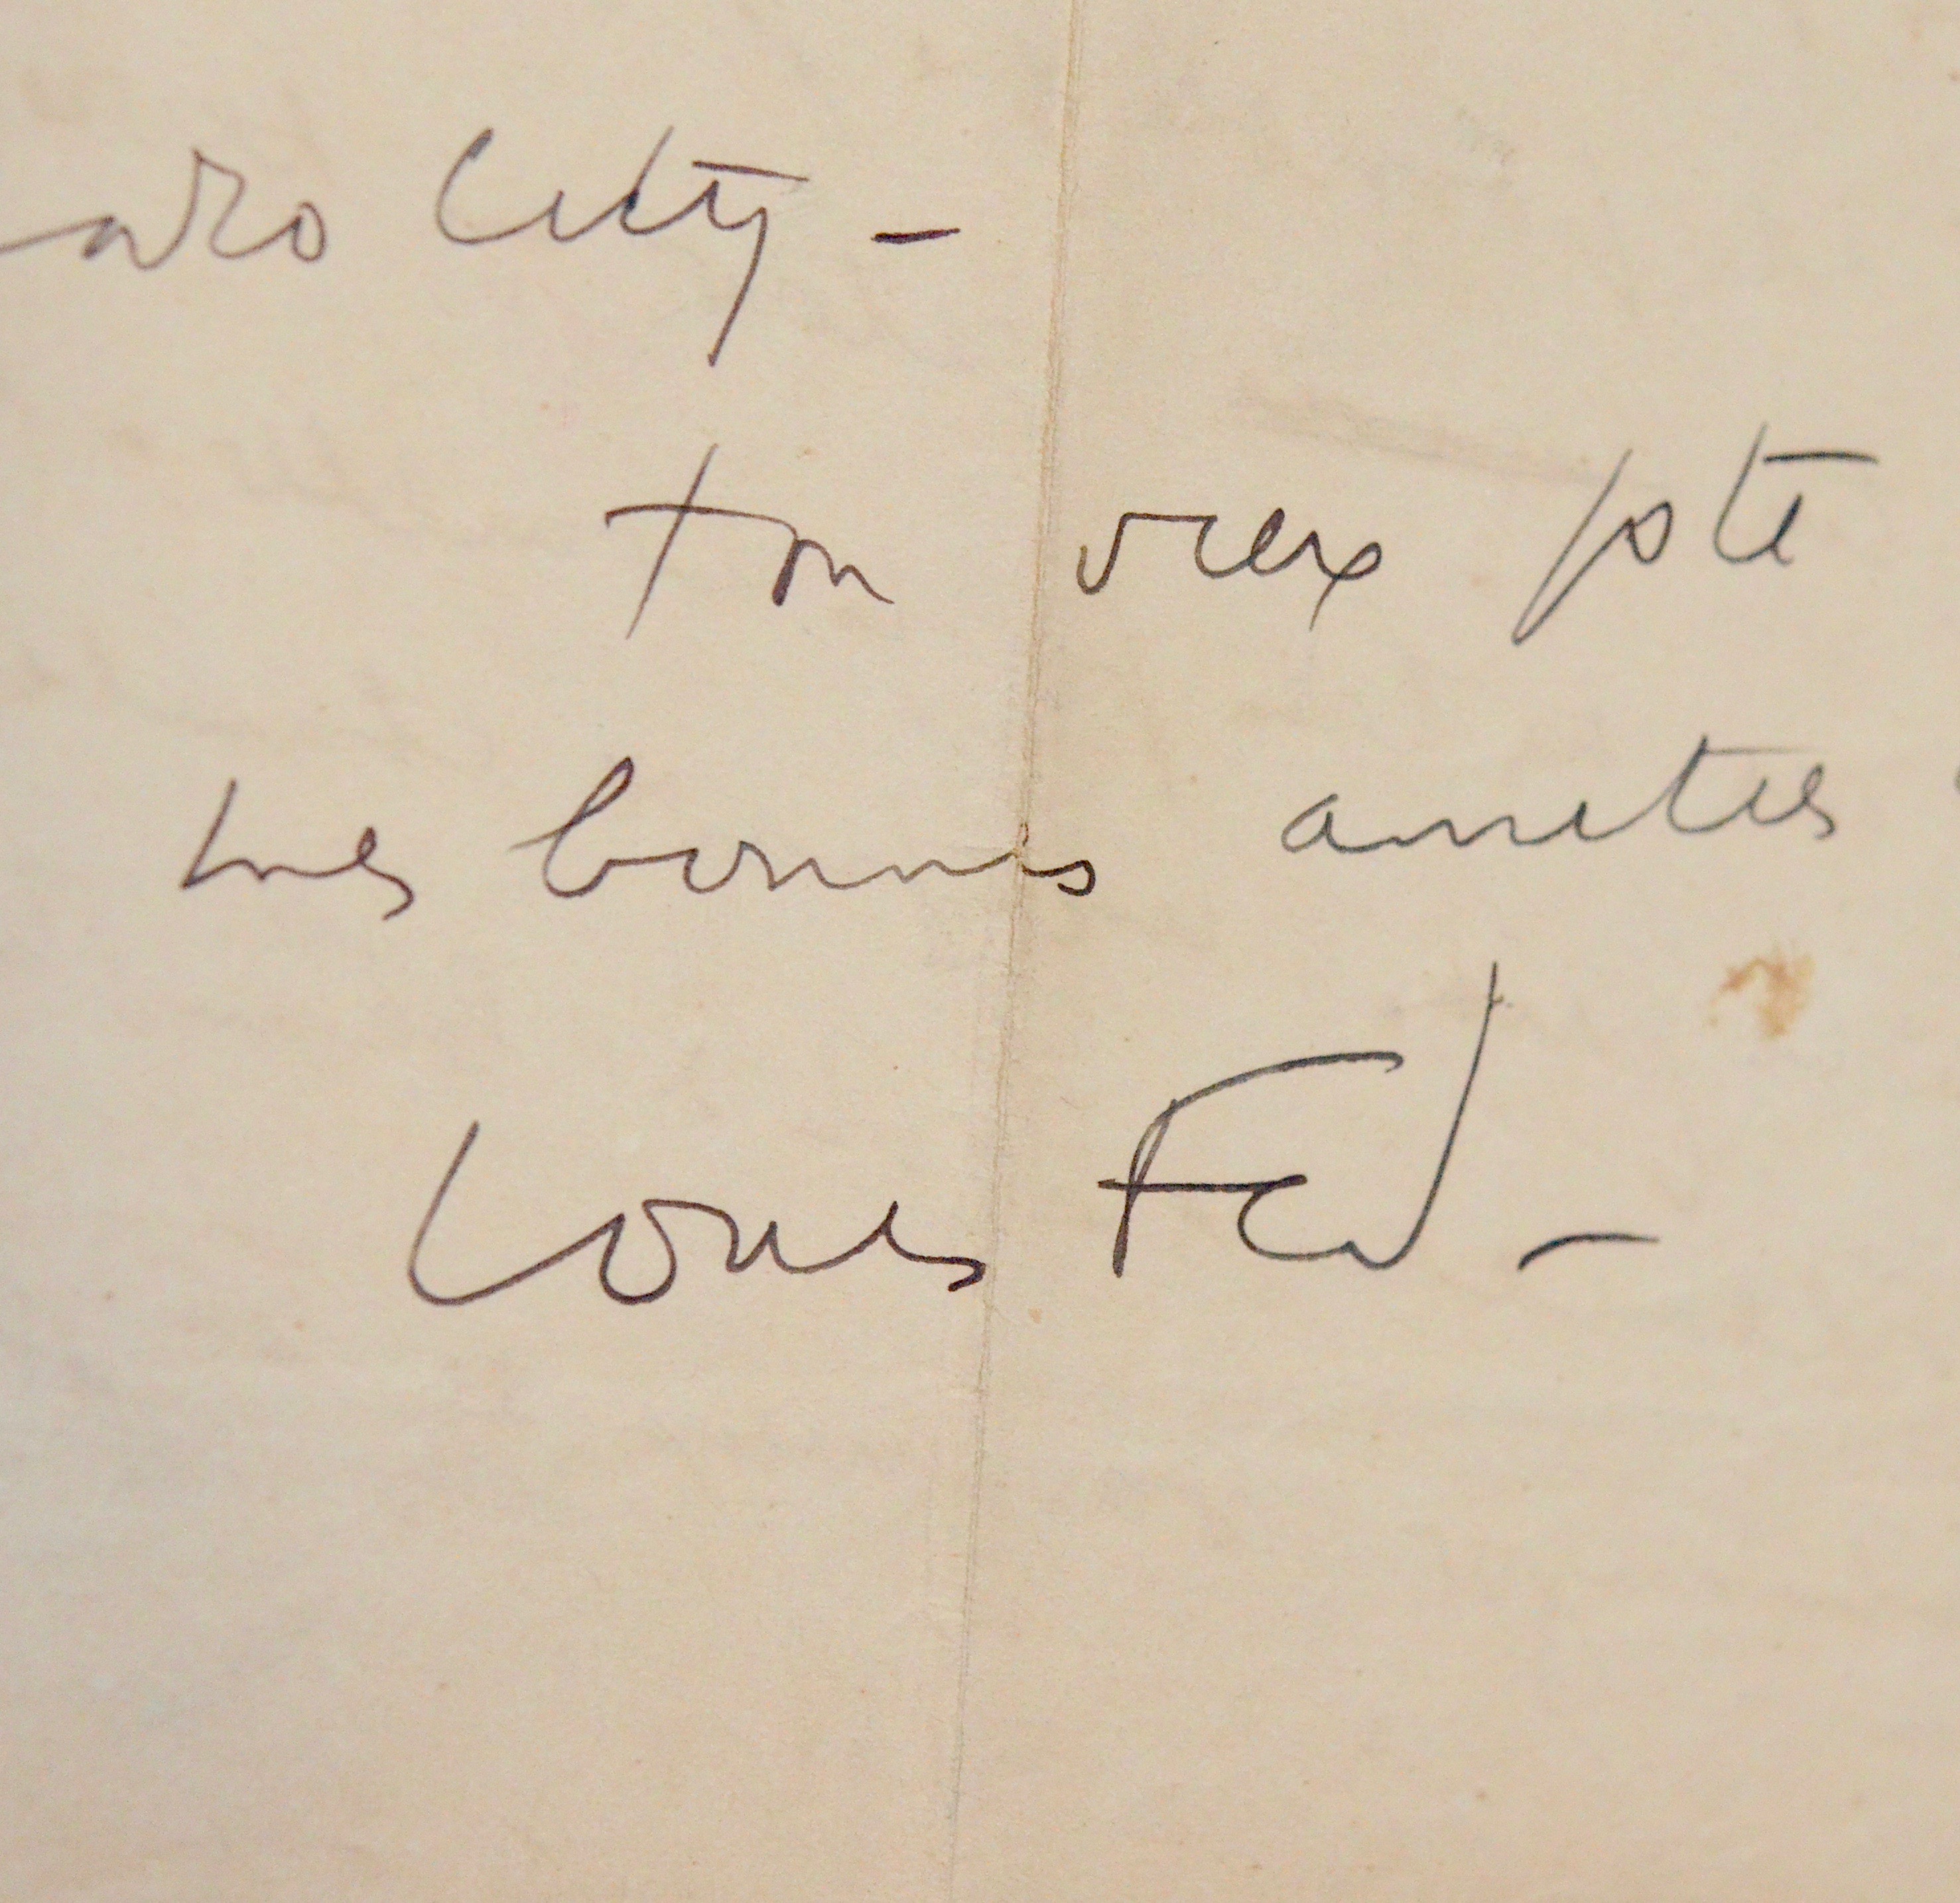 City -
ton vieux pote
mes bonnes amitiés
Louis Fed -